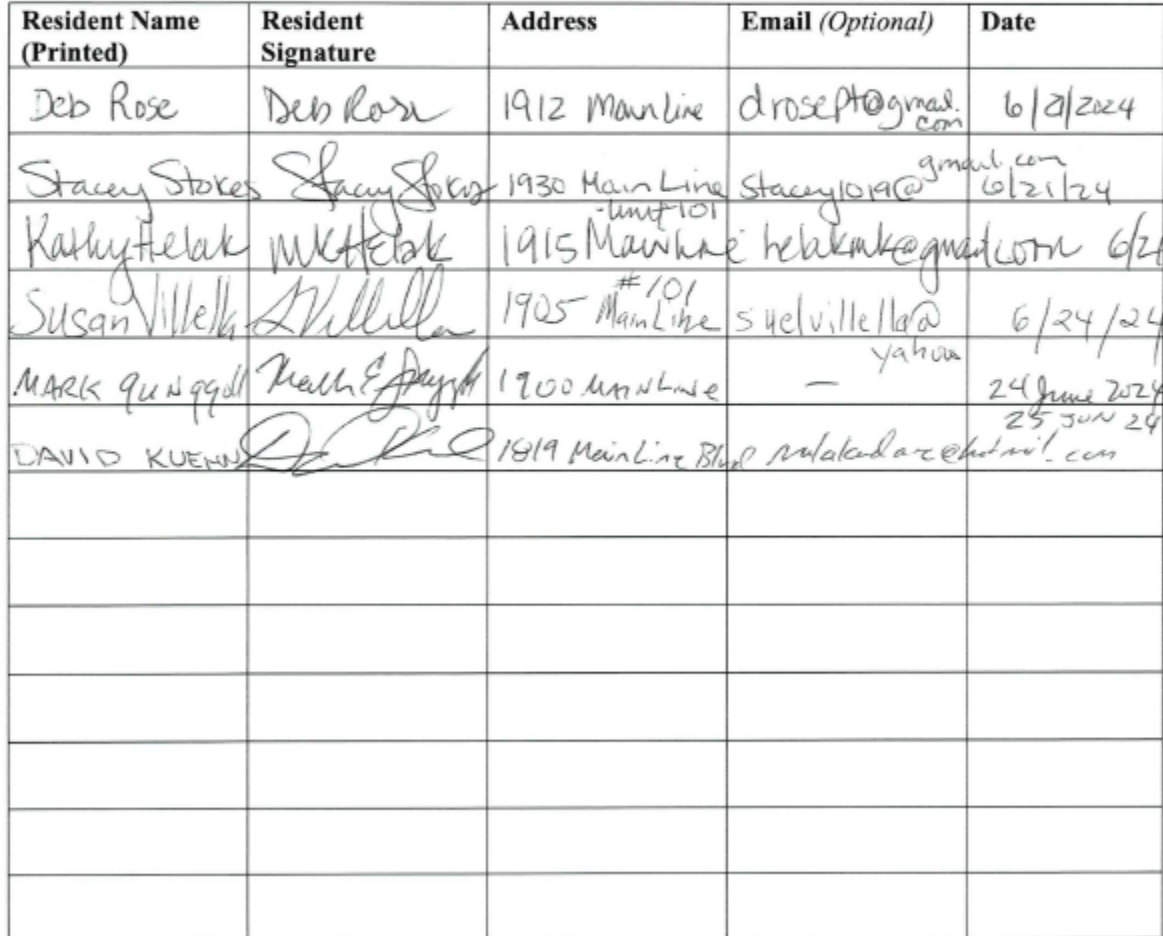 Resident Name (Printed) Resident Signature Address Email (Optional) Date
Deb Rose Deb Rose 1912 Main Line drosept@gmail.com 6/21/2024
Stacey Stokes Stacey Stokes 1930 Main Line unit 101 stacey1019@gmail.com 6/21/24
Kathy Helak MK Helak 1915 Mainline helakmk@gmail.com 6/21
Susan Villella SVillella 1905 Main Line #101 suelvillella@yahoo 6/24/24
MARK 1900 MAINLINE — 24 June 2024
DAVID KUEHN 1819 Main Line Blvd 25 JUN 24